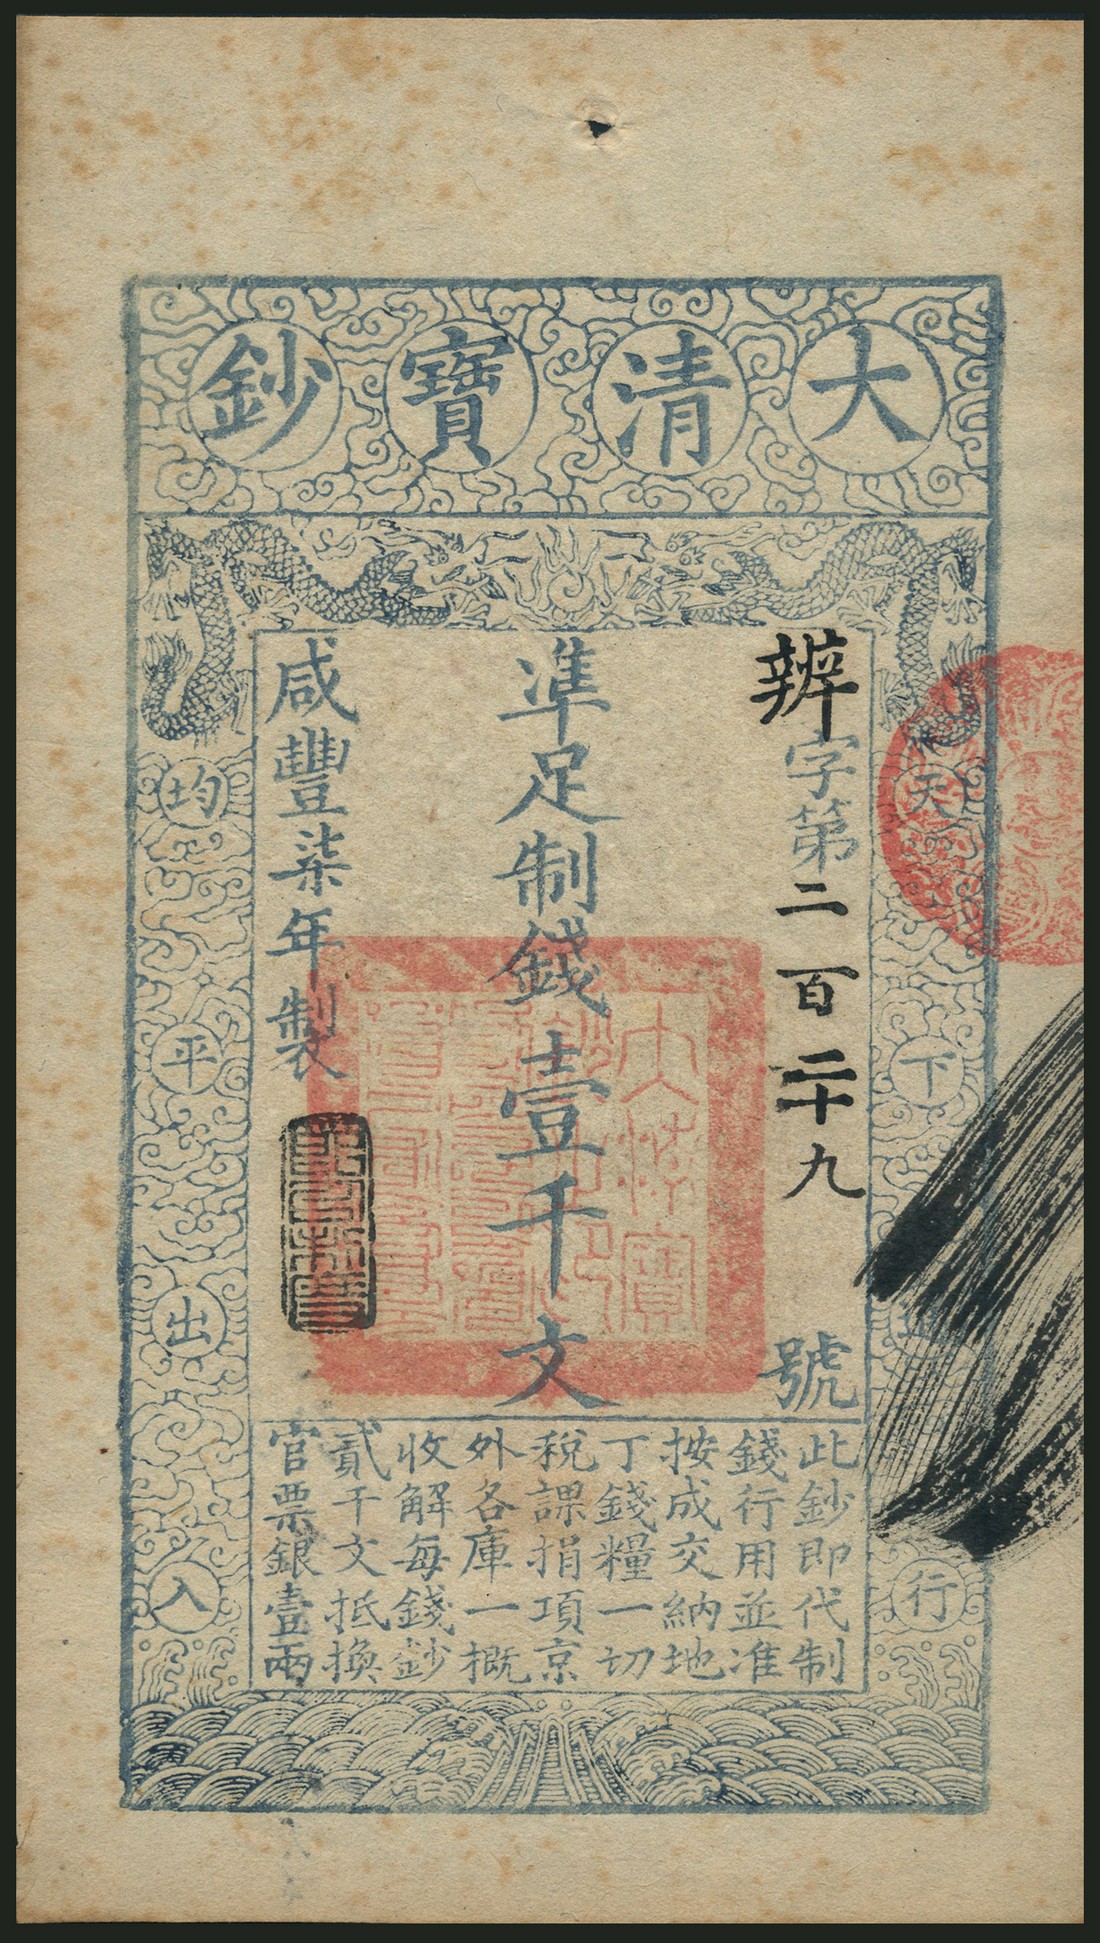 大清寶鈔
天下
行
辨字第二百二十九號
準足制錢壹千文
咸豐柒年製
均平出入
此鈔即代制
錢行用並准
按成交納地
丁錢糧一切
稅課捐項京
外各庫一概
收解每錢鈔
貳千文抵換
官票銀壹兩